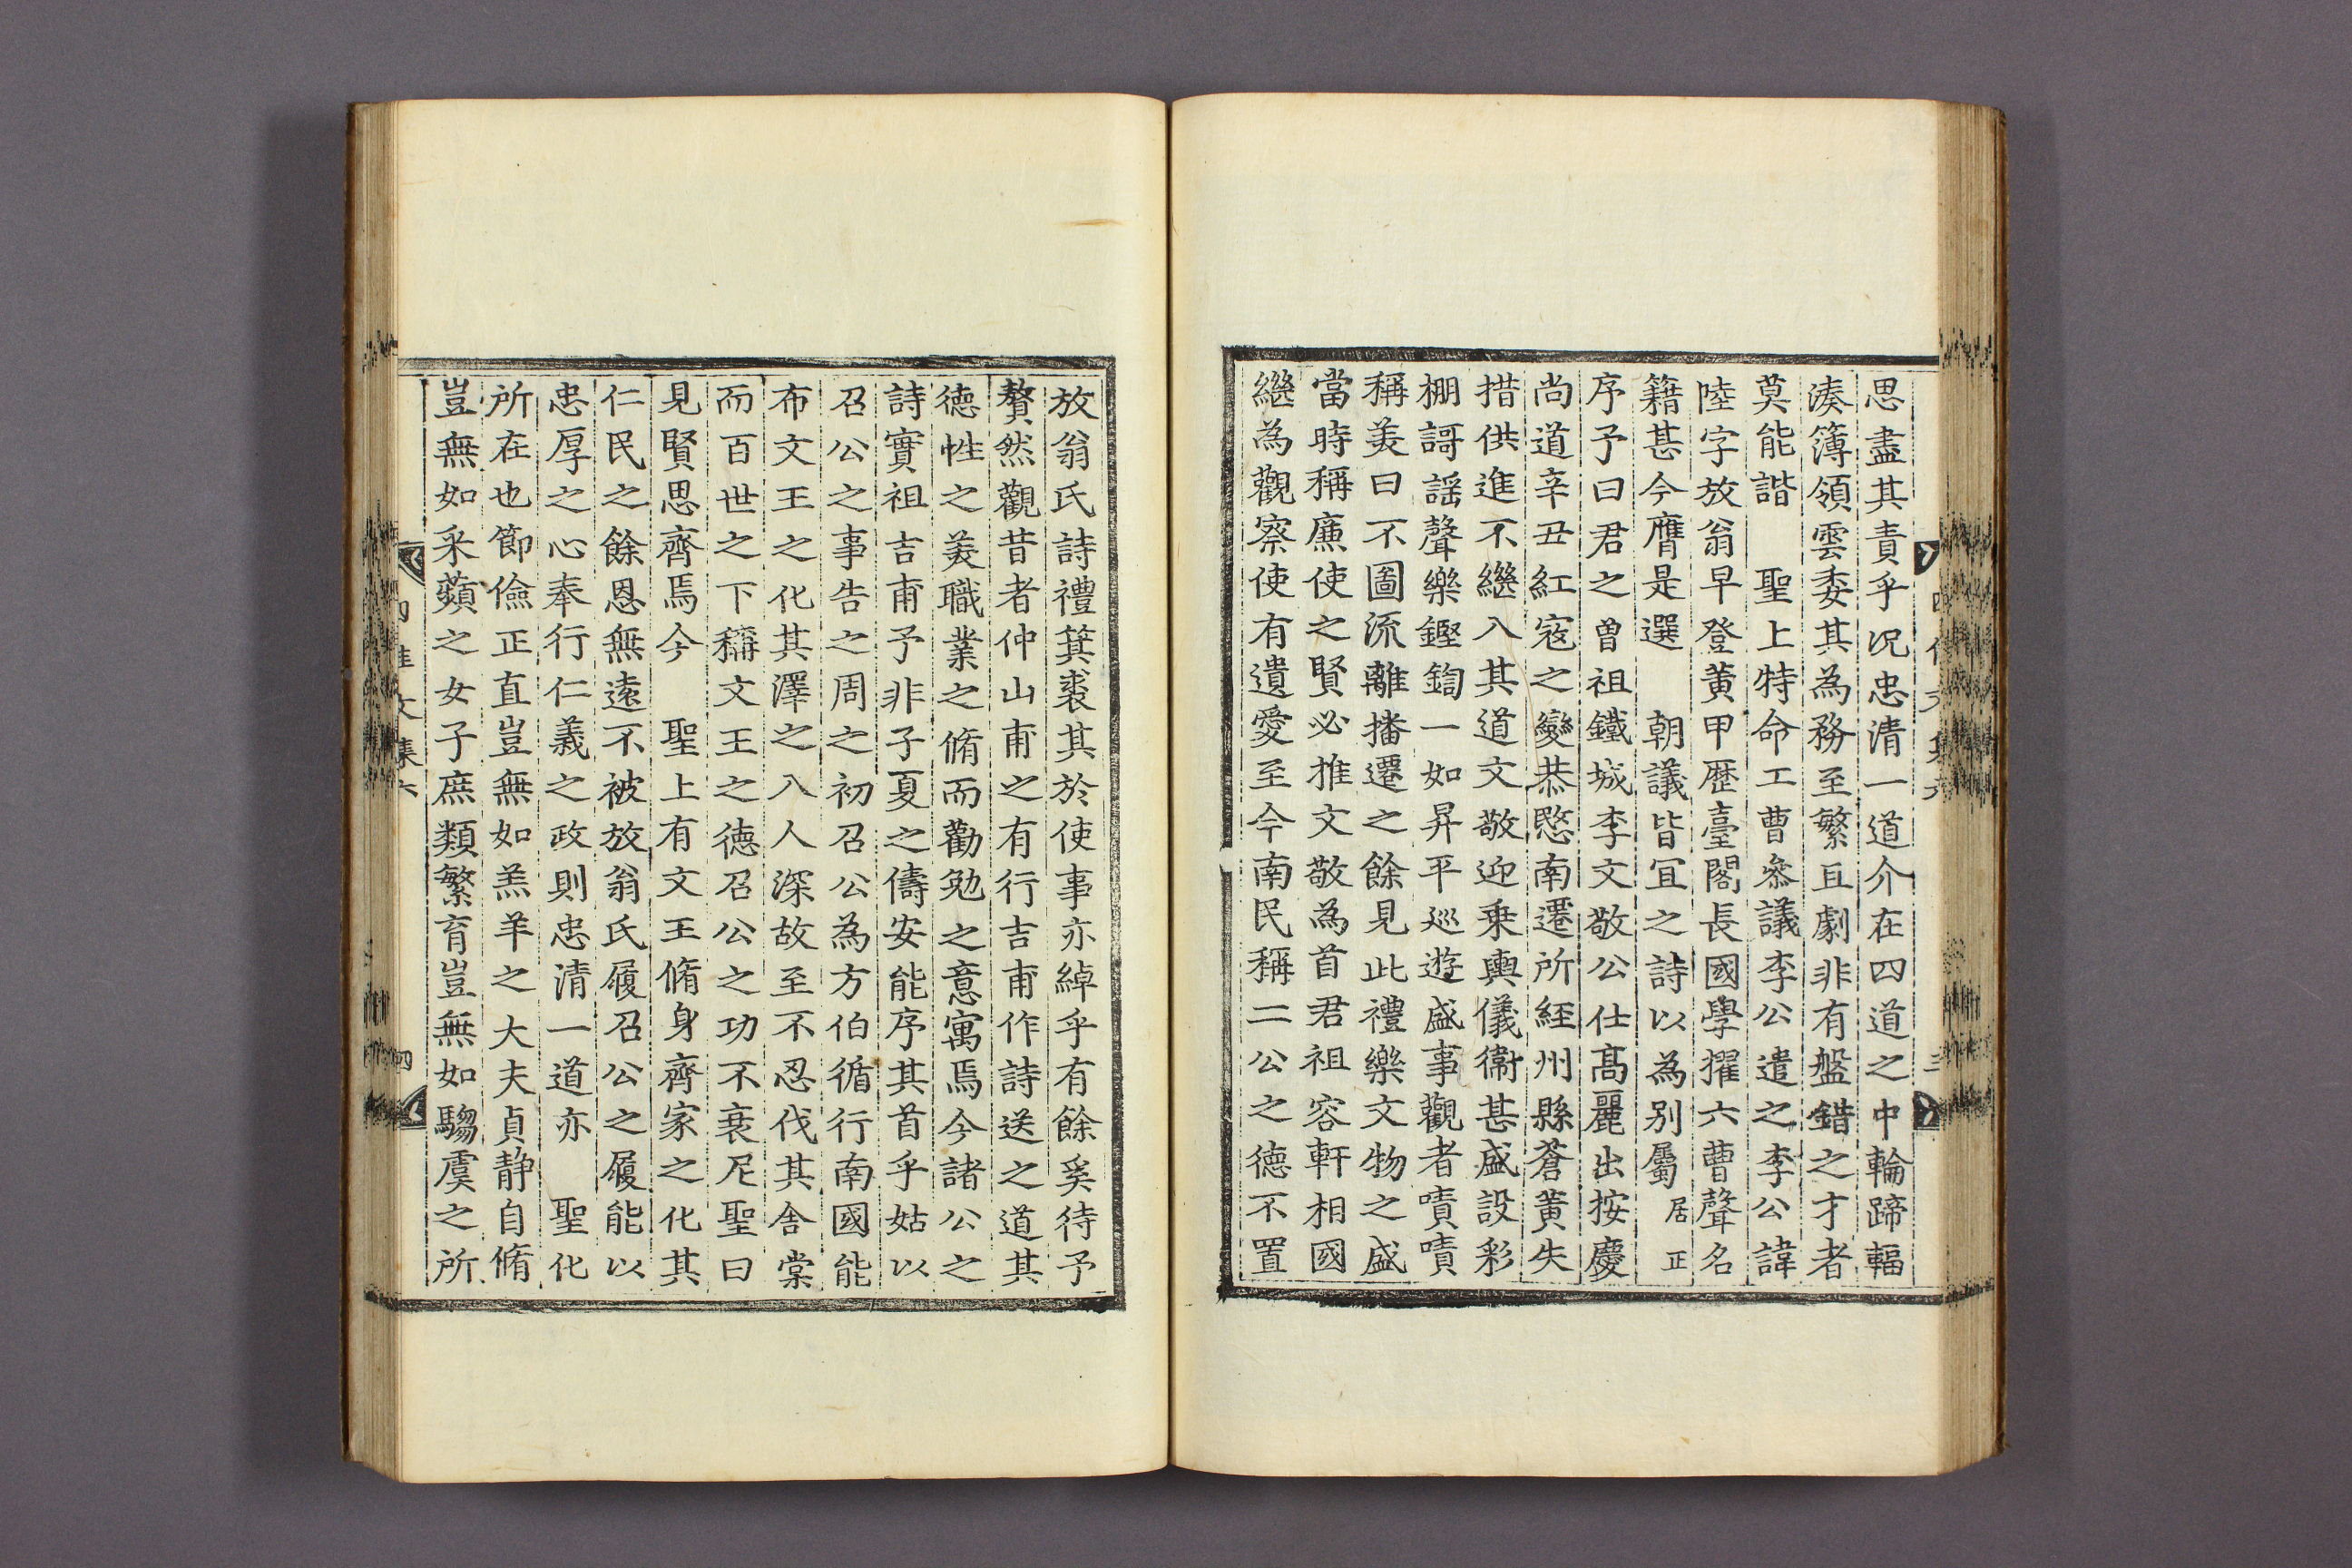 思盡其責乎况忠清一道介在四道之中輪蹄輻
湊簿領雲委其為務至繁且劇非有盤錯之才者
莫能諧 聖上特命工曹叅議李公遣之李公諱
陸字放翁早登黄甲歷臺閣長國學擢六曹聲名
籍甚今膺是選 朝議皆冝之詩以為别屬居正
序予曰君之曽祖鐵城李文敬公仕髙麗出按慶
尚道辛丑紅寇之變恭愍南遷所經州縣蒼黃失
措供進不繼入其道文敬迎乗輿儀衛甚盛設彩
棚謌謡聲樂鏗鍧一如昇平巡遊盛事觀者嘖嘖
稱羙曰不圖流離播遷之餘見此禮樂文物之盛
當時稱廉使之賢必推文敬為首君祖容軒相國
繼為觀察使有遺愛至今南民稱二公之德不置
放翁氏詩禮箕裘其於使事亦綽乎有餘奚待予
贅然觀昔者仲山甫之有行吉甫作詩送之道其
德性之羙職業之脩而勸勉之意寓焉今諸公之
詩實祖吉甫予非子夏之儔安能序其首乎姑以
召公之事告之周之初召公為方伯循行南國能
布文王之化其澤之入人深故至不忍伐其舎棠
而百世之下稱文王之德召公之功不衰尼聖曰
見賢思齊焉今 聖上有文王脩身齊家之化其
仁民之餘恩無遠不被放翁氏履召公之履能以
忠厚之心奉行仁義之政則忠清一道亦 聖化
所在也節儉正直豈無如羔羊之大夫貞静自脩
豈無如采蘋之女子庶類繁育豈無如騶虞之所